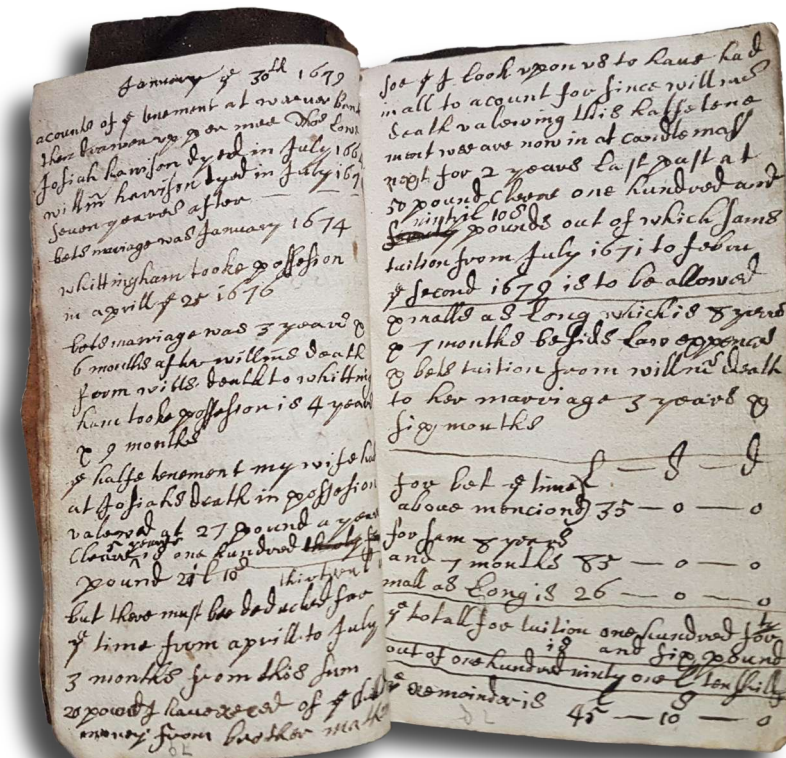 January ye 30th 1679
acounts of ye tenement at weever
then drawen up per mee Tho Low
Josiah harrison dyed in July 166
willm harrison dyed in July 167
seven yeares after
bets mariage was January 1674
whittingham tooke possession
in aprill ye 25 1676
bets marriage was 3 years &
6 months after willms death
from wills death to whitting
ham tooke possession is 4 years
& 9 months
ye halfe tenement my wife had
at Josiahs death in possession
valewed at 27 pound a year
Cleare is one hundred
pound thirteen
but there must bee deducked for
ye time from aprill to July
3 months from this sum
20 pound I have of ye
money from brother
soe yt I look upon us to have had
in all to acount for since willms
death valewing this halfe tene
ment wee are now in at candlemas
next for 2 years Last past at
50 pound Cleere one hundred and
nintie 10s
pounds out of which Jams
tuition from July 1671 to febru
ye second 1679 is to be allowed
& malls as Long which is 8 yeares
& 7 months besids Law expences
& bets tuition from willms death
to her marriage 3 years &
six months
£ — s — d
for bet ye time
above mencioned 35 — 0 — 0
for Jam 8 years
and 7 months 85 — 0 — 0
mall as Long is 26 — 0 — 0
ye totall for tuition one hundred for
ty is and six pound
out of one hundred ninty one £ ten shill
ye remainder is 45 — 10 — 0